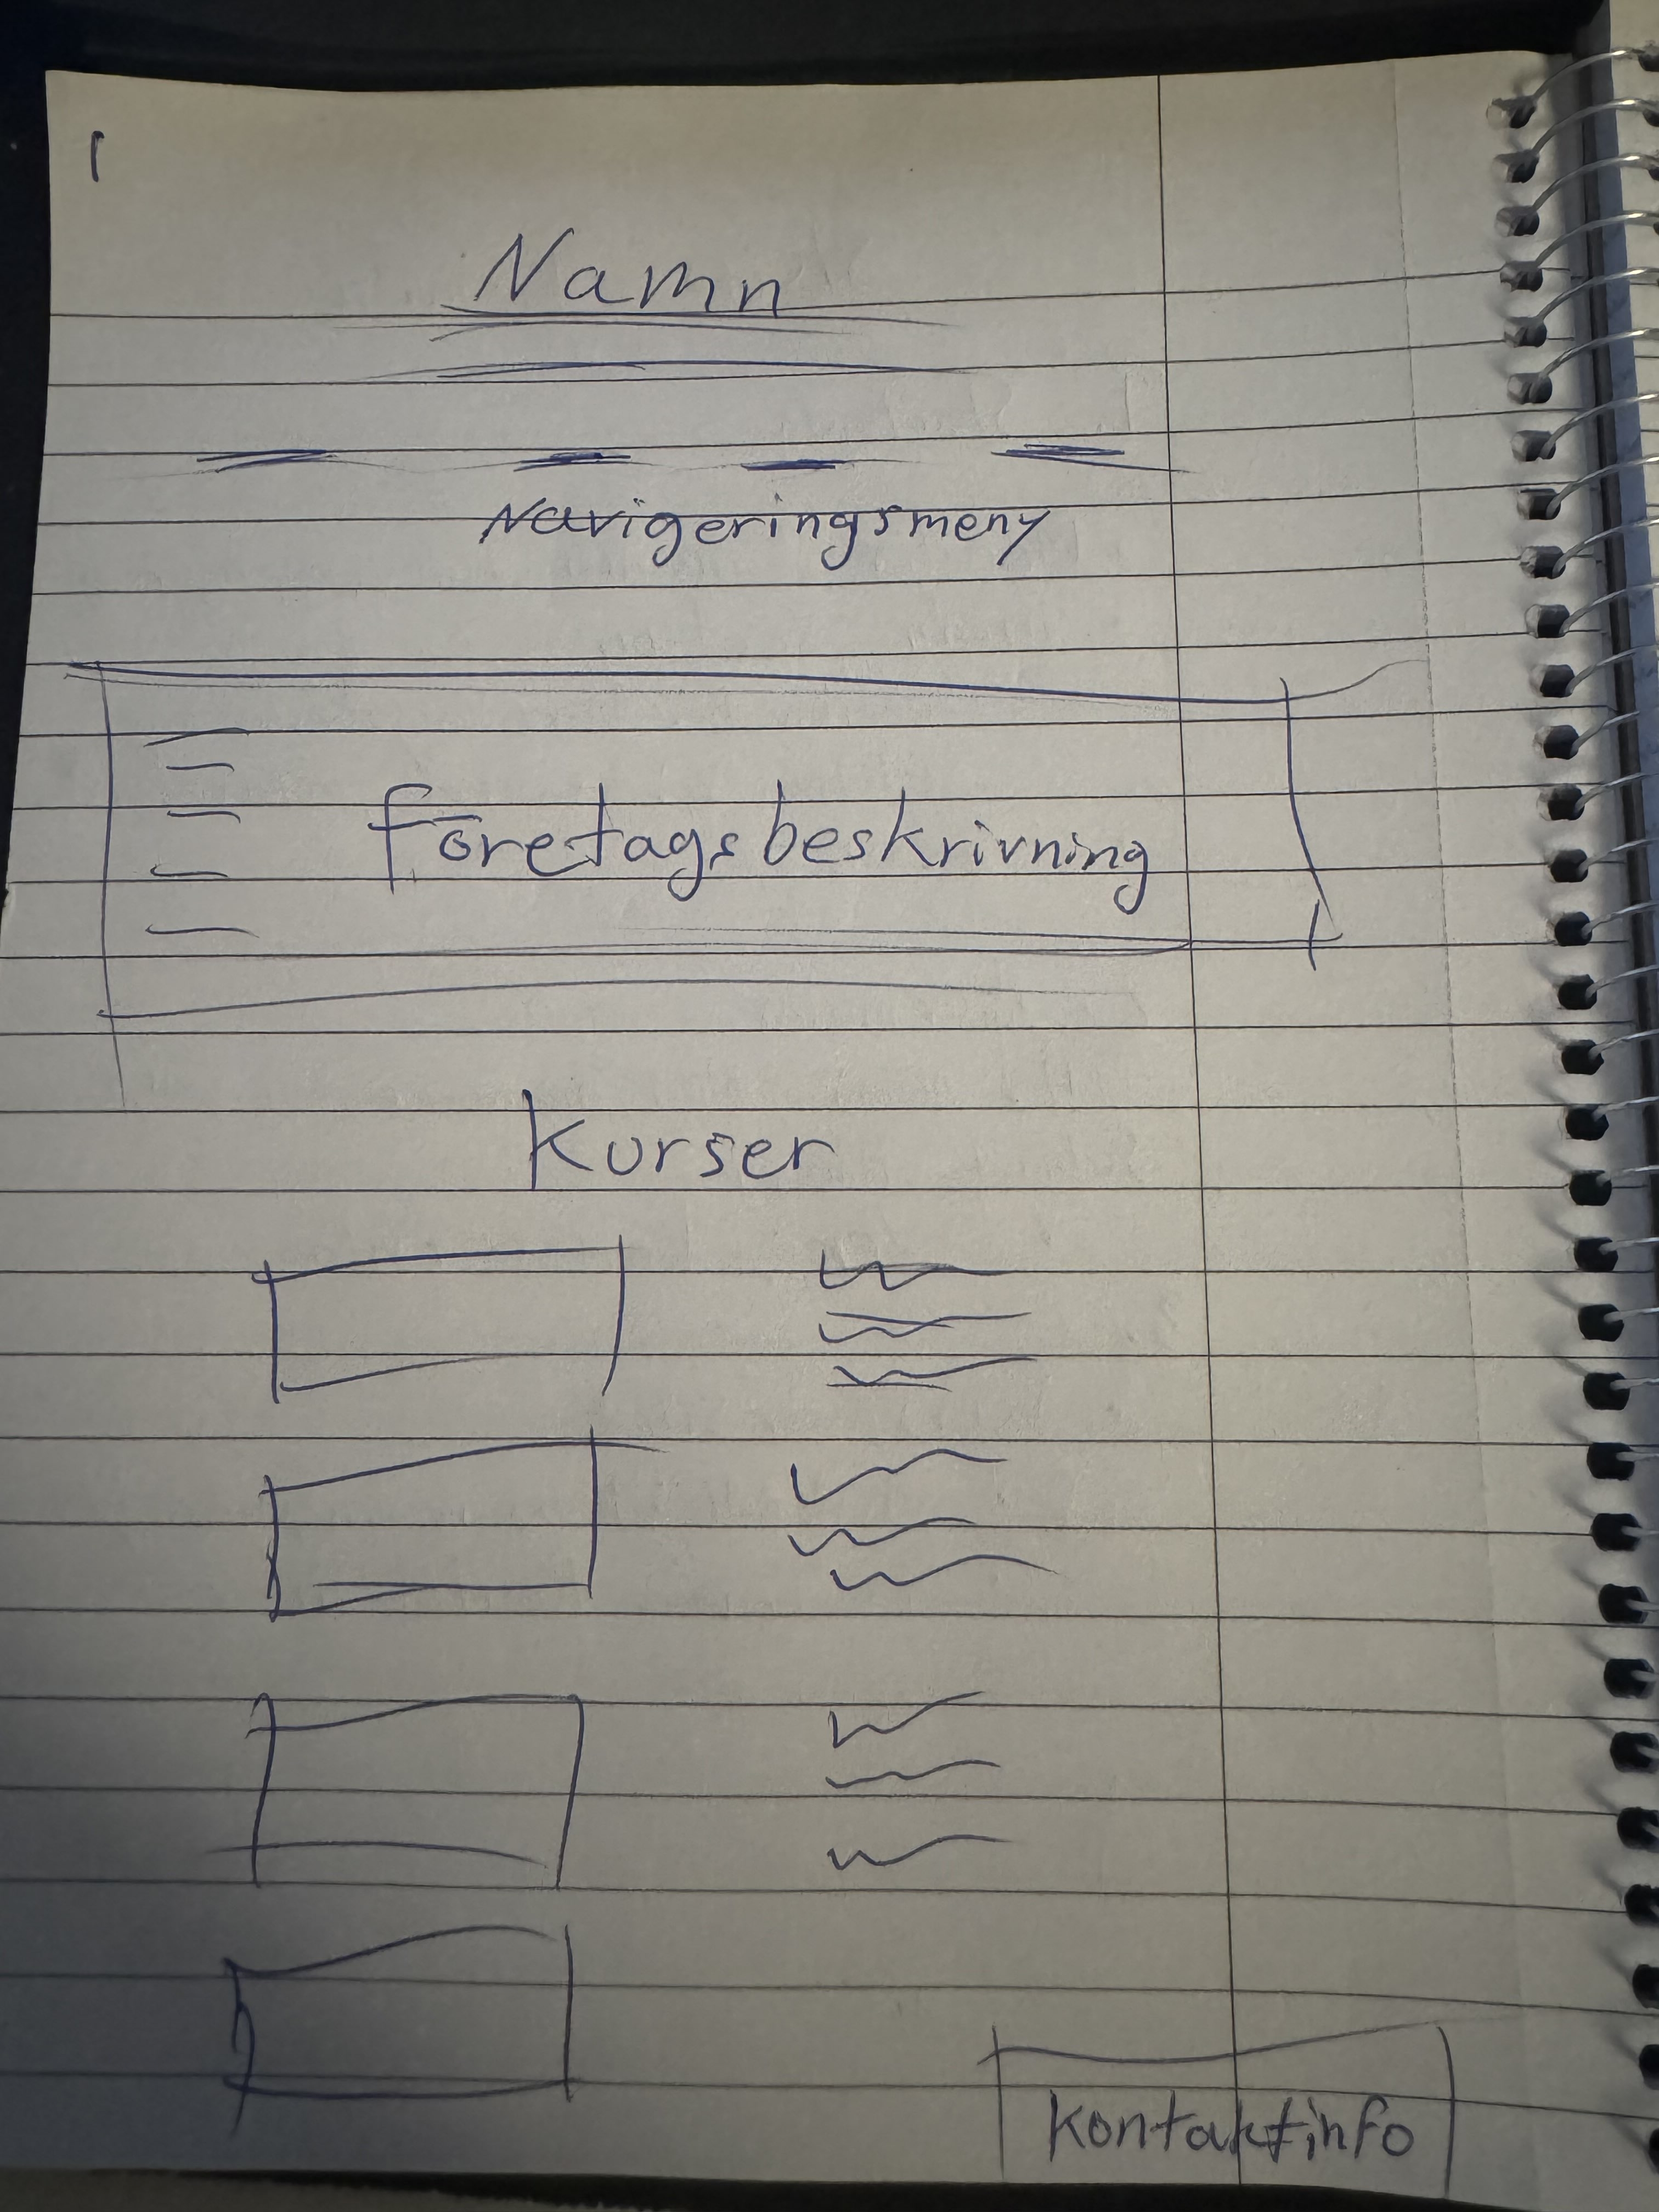 1
Namn
Navigeringsmeny
Företagsbeskrivning
Kurser
Kontaktinfo